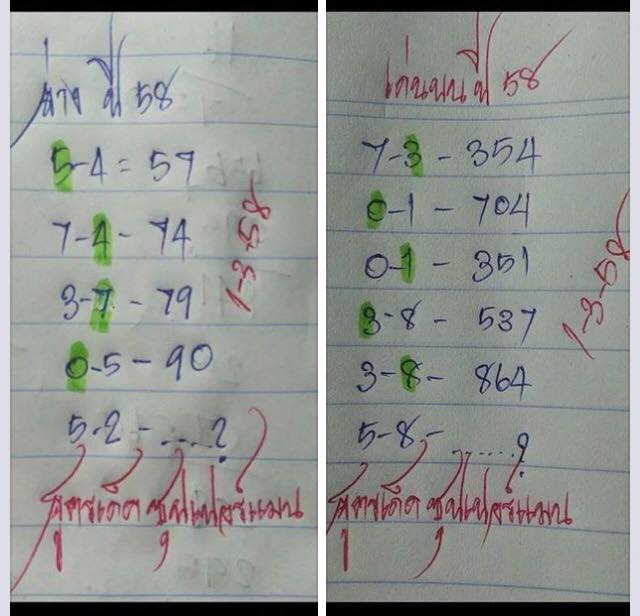 ล่าง ปี 58
5-4 = 57
7-4 - 74
3-7 - 79
0-5 - 90
5-2 - ....?
1-3-58
สูตรเด็ด ซุปเปอร์แมน
เด่นบน ปี 58
7-3 - 354
0-1 - 704
0-1 - 351
3-8 - 537
3-8 - 864
5-8 - ......?
1-3-58
สูตรเด็ด ซุปเปอร์แมน